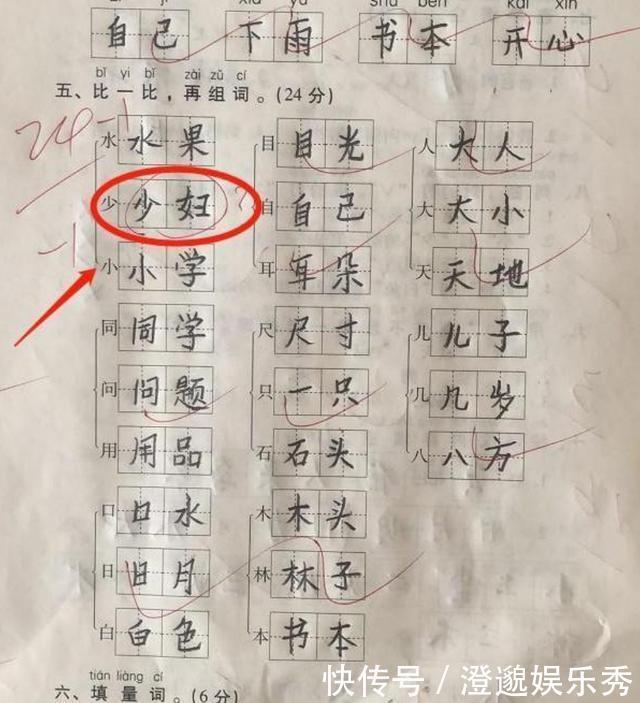 自己 下雨 书本 开心
bǐ yi bǐ zài zǔ cí
五、比一比，再组词。(24分)
24-1
水 水果 目 目光 人 大人
少 少妇 自 自己 大 大小
-1
小 小学 耳 耳朵 天 天地
同 同学 尺 尺寸 儿 儿子
问 问题 只 一只 几 几岁
用 用品 石 石头 八 八方
口 口水 木 木头
日 日月 林 林子
白 白色 本 书本
tián liàng cí
六、填量词。(6分)
快传号/澄邈娱乐秀